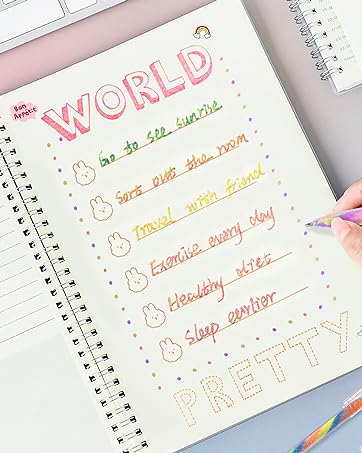 Bon
Appetit
WORLD
Go to see sunrise
Sort out the room
Travel with friend
Exercise every day
Healthy diet
Sleep earlier
PRETTY